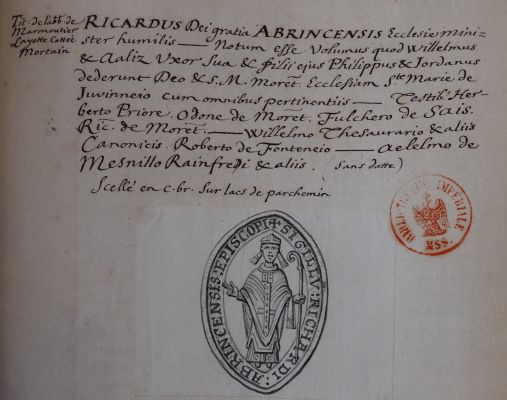 Tit. de l'abb. de
Marmoutier
Layette Cottée
Mortain
RICARDUS Dei gratia ABRINCENSIS Ecclesie mini=
ster humilis — Notum esse volumus quod Willelmus
& Aaliz Uxor Sua & filii ejus Philippus & Jordanus
dederunt Deo & S. M. Moret. Ecclesiam Ste Marie de
Juvinneio cum omnibus pertinentiis — Testib. Her-
berto Priore. Odone de Moret. Fulchero de Sais.
Ric. de Moret. — Willelmo Thesaurario & aliis
Canonicis. Roberto de Fonteneio — Aelelmo de
Mesnillo Rainfredi & aliis. (Sans datte)
Scellé en c. br. Sur lacs de parchemin
SIGILLV: RICHARDI: ABRINCENSIS: EPISCOPI
BIBLIOTHEQUE IMPERIALE
MSS.